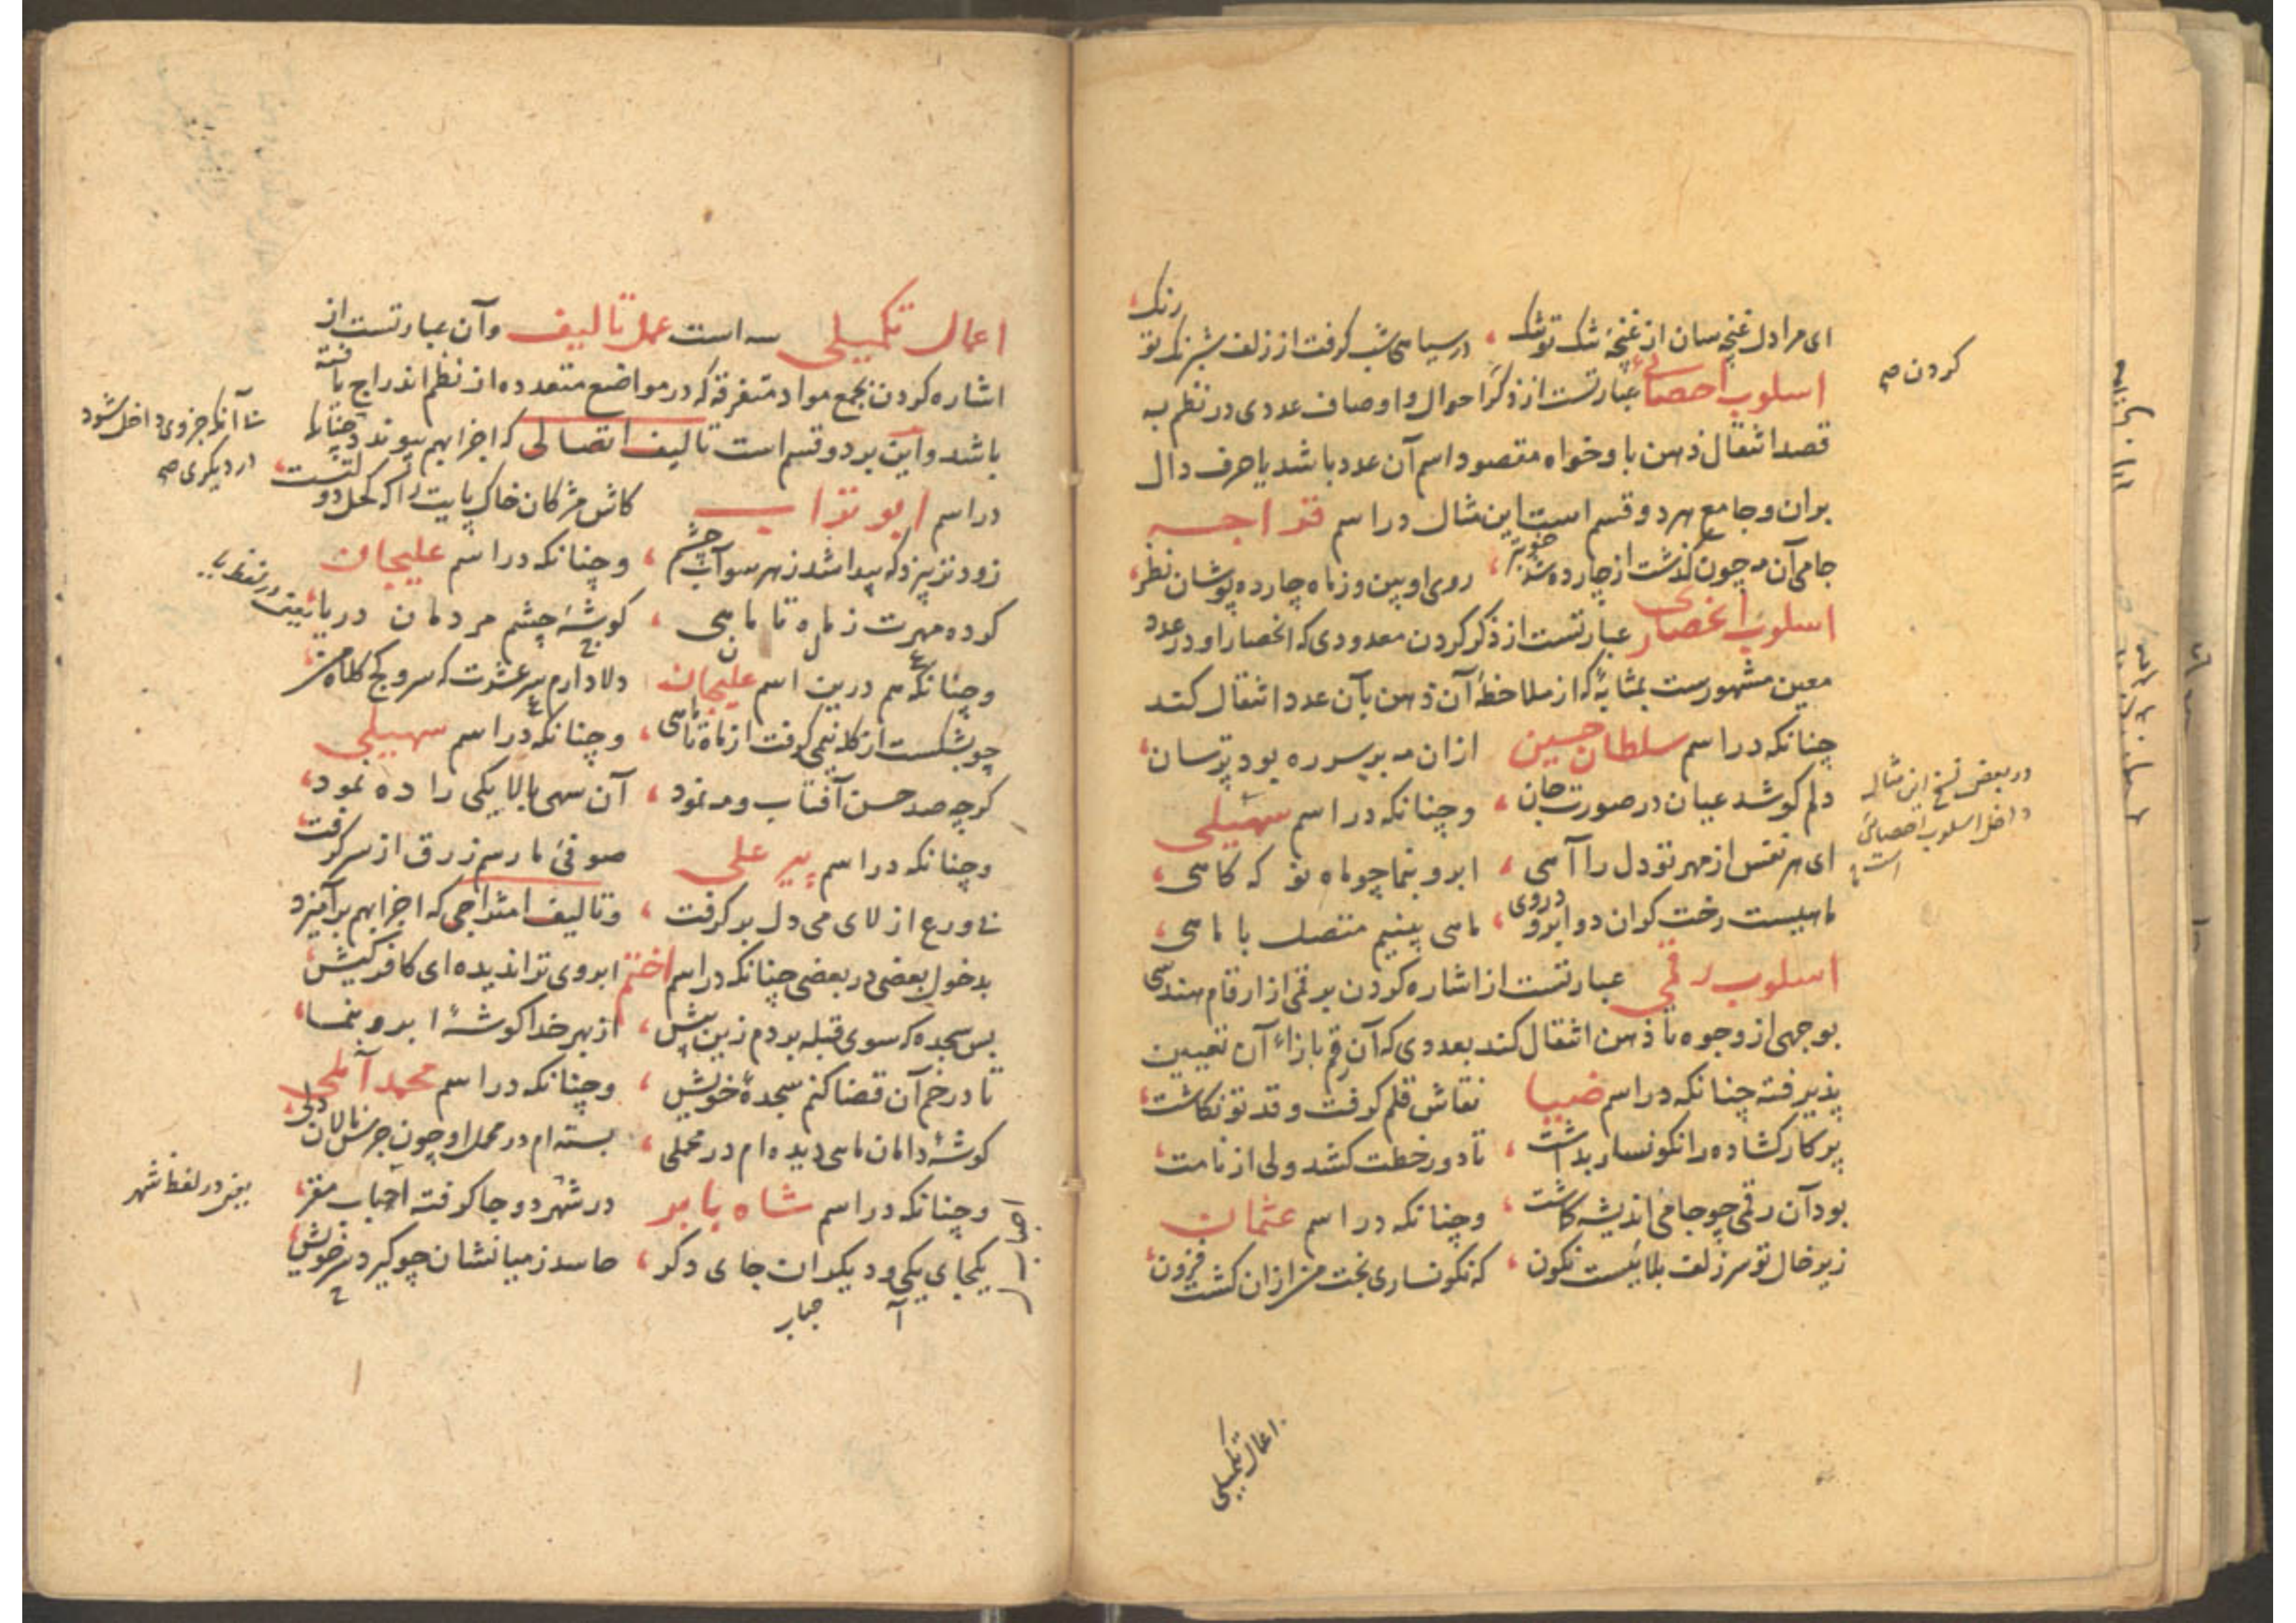 ای مرا دل غنچه سان از غنچهٔ تنک تو تنک ، در سیاهی شب کرفت از زلف شبرنک تو رنک
اسلوب احصائی عبارتست از ذکر احوال و اوصاف عددی در نظم به
کردن صح
قصد انتقال ذهن باو خواه مقصود اسم آن عدد باشد یا حرف دال
بران و جامع هر دو قسم است این مثال در اسم قراجه
جامی آن مه چون کذشت از چارده شد خوبتر ، روی او بین و ز ماه چارده پوشان نظر
اسلوب انحصاری عبارتست از ذکر کردن معدودی که انحصار او در عدد
معین مشهورست بمثابهٔ که از ملاحظهٔ آن ذهن بآن عدد انتقال کند
چنانکه در اسم سلطان حسین ازان مه بر سر ره بود ترسان
دلم کو شد عیان در صورت جان ، و چنانکه در اسم سهیلی
در بعض نسخ این مثال
داخل اسلوب احصائی
است
ای هر نفس از مهر تو دل را آهی ، ابرو بنما چو ماه نو که کاهی
ماهیست رخت کو ان دو ابرو در وی ، ماهی بینیم متصل با ماهی
اسلوب رقمی عبارتست از اشاره کردن برقمی از ارقام هندسی
بوجهی از وجوه تا ذهن انتقال کند بعددی که آن رقم بازاء آن تعیین
پذیرفته چنانکه در اسم ضیا نقاش قلم کرفت و قد تو نکاشت
پرکار کشاده را نکونسار بداشت ، تا دور خطت کشد ولی از نامت
بود آن رقمی چو جامی اندیشه کاشت ، و چنانکه در اسم عثمان
زیر خال تو سر زلف بلائیست نکون ، که نکونساری بخت من ازان کشت فزون
اعمال تکمیلی
اعمال تکمیلی سه است عمل تالیف و آن عبارتست از
اشاره کردن بجمع مواد متفرقه که در مواضع متعدده از نظم اندراج یافته
باشد و این بر دو قسم است تالیف اتصالی که اجزا بهم پیوندد چنانکه
آنکه جزوی داخل شود
در دیکری صح
در اسم ابو تراب کاش مژکان خاک پایت را که کحل دولتست
زود تر بیزد که پیدا شد ز هر سو آب چشم ، و چنانکه در اسم علیجان
کرده مهرت ز ماه تا ماهی ، کوشهٔ چشم مردمان دریا
یعنی در لفظ یا
و چنانکه هم درین اسم علیجان دلا دارم سر عشوت که سرو کج کلاه من
چو بشکست از کله نیمی کرفت از ماه تا ماهی ، و چنانکه در اسم سهیلی
کرچه صد حسن آفتاب و مه نمود ، آن سهی بالا یکی را ده نمود
و چنانکه در اسم پیر علی صوفئ ما رسم زرق از سر کرفت
ورع از لای می دل بر کرفت ، و تالیف امتزاجی که اجزا بهم بر آمیزد
بدخول بعضی در بعضی چنانکه در اسم اختم ابروی ترا ندیده ای کافر کیش
بس سجده که سوی قبله بردم زین پیش ، از بهر خدا کوشهٔ ابرو بنما
تا در خم آن قضا کنم سجدهٔ خویش ، و چنانکه در اسم محمد آملی
کوشهٔ دامان ماهی دیده ام در محملی ، بسته ام در محمل او چون جرس نالان دلی
و چنانکه در اسم شاه بابر در شهر دو جا کرفته احباب مقر
یعنی در لفظ شهر
یکجای یکی و دیکران جای دکر ، حاسد ز میانشان چو کیرد سر خویش